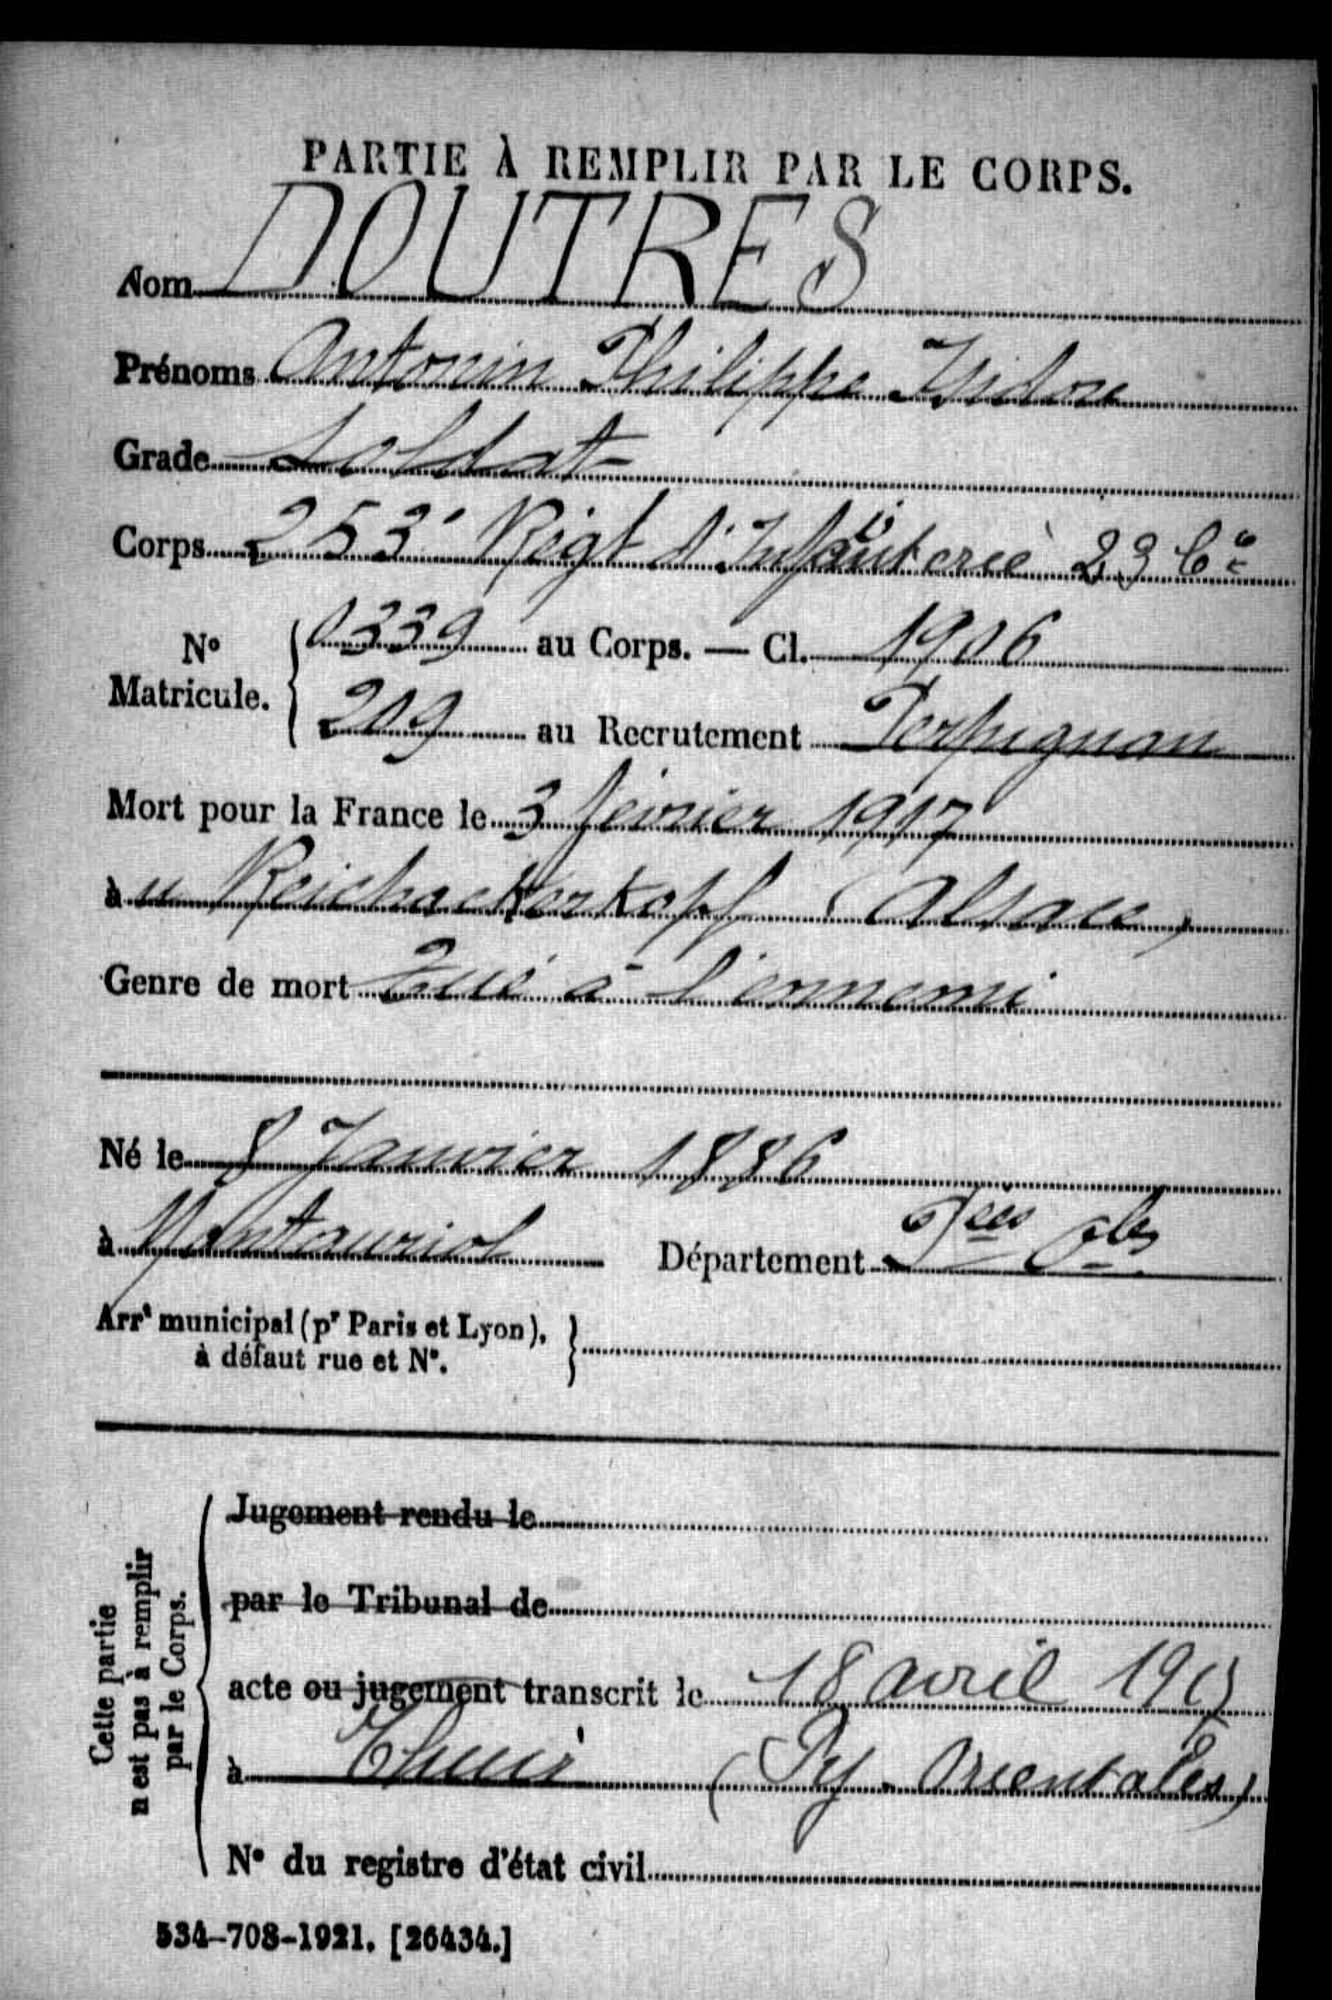 PARTIE À REMPLIR PAR LE CORPS.
Nom DOUTRES
Prénoms Antonin Philippe Isidore
Grade Soldat
Corps 253e Régt d'Infanterie 23 Cie
No Matricule. 0339 au Corps. — Cl. 1906
209 au Recrutement Perpignan
Mort pour la France le 3 février 1917
à u Reichackerkopf (Alsace)
Genre de mort Tué à l'ennemi
Né le 8 Janvier 1886
à Montauriol Département Pées Ales
Arrt municipal (pr Paris et Lyon),
à défaut rue et No.
Cette partie
n'est pas à remplir
par le Corps.
Jugement rendu le
par le Tribunal de
acte ou jugement transcrit le 18 avril 191
à Thuir (Py. Orientales)
No du registre d'état civil
534-708-1921. [26434.]